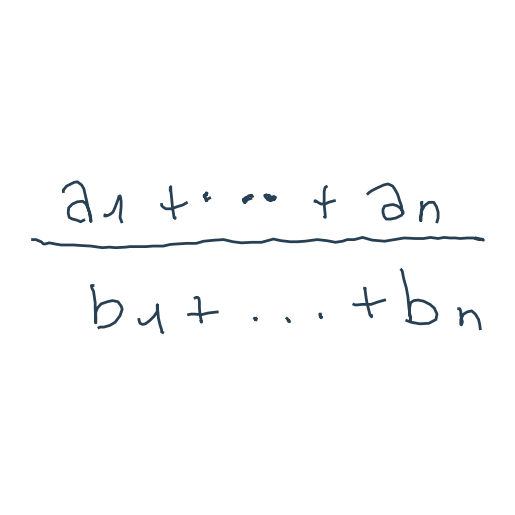 a1 + ... + an
b1 + ... + bn